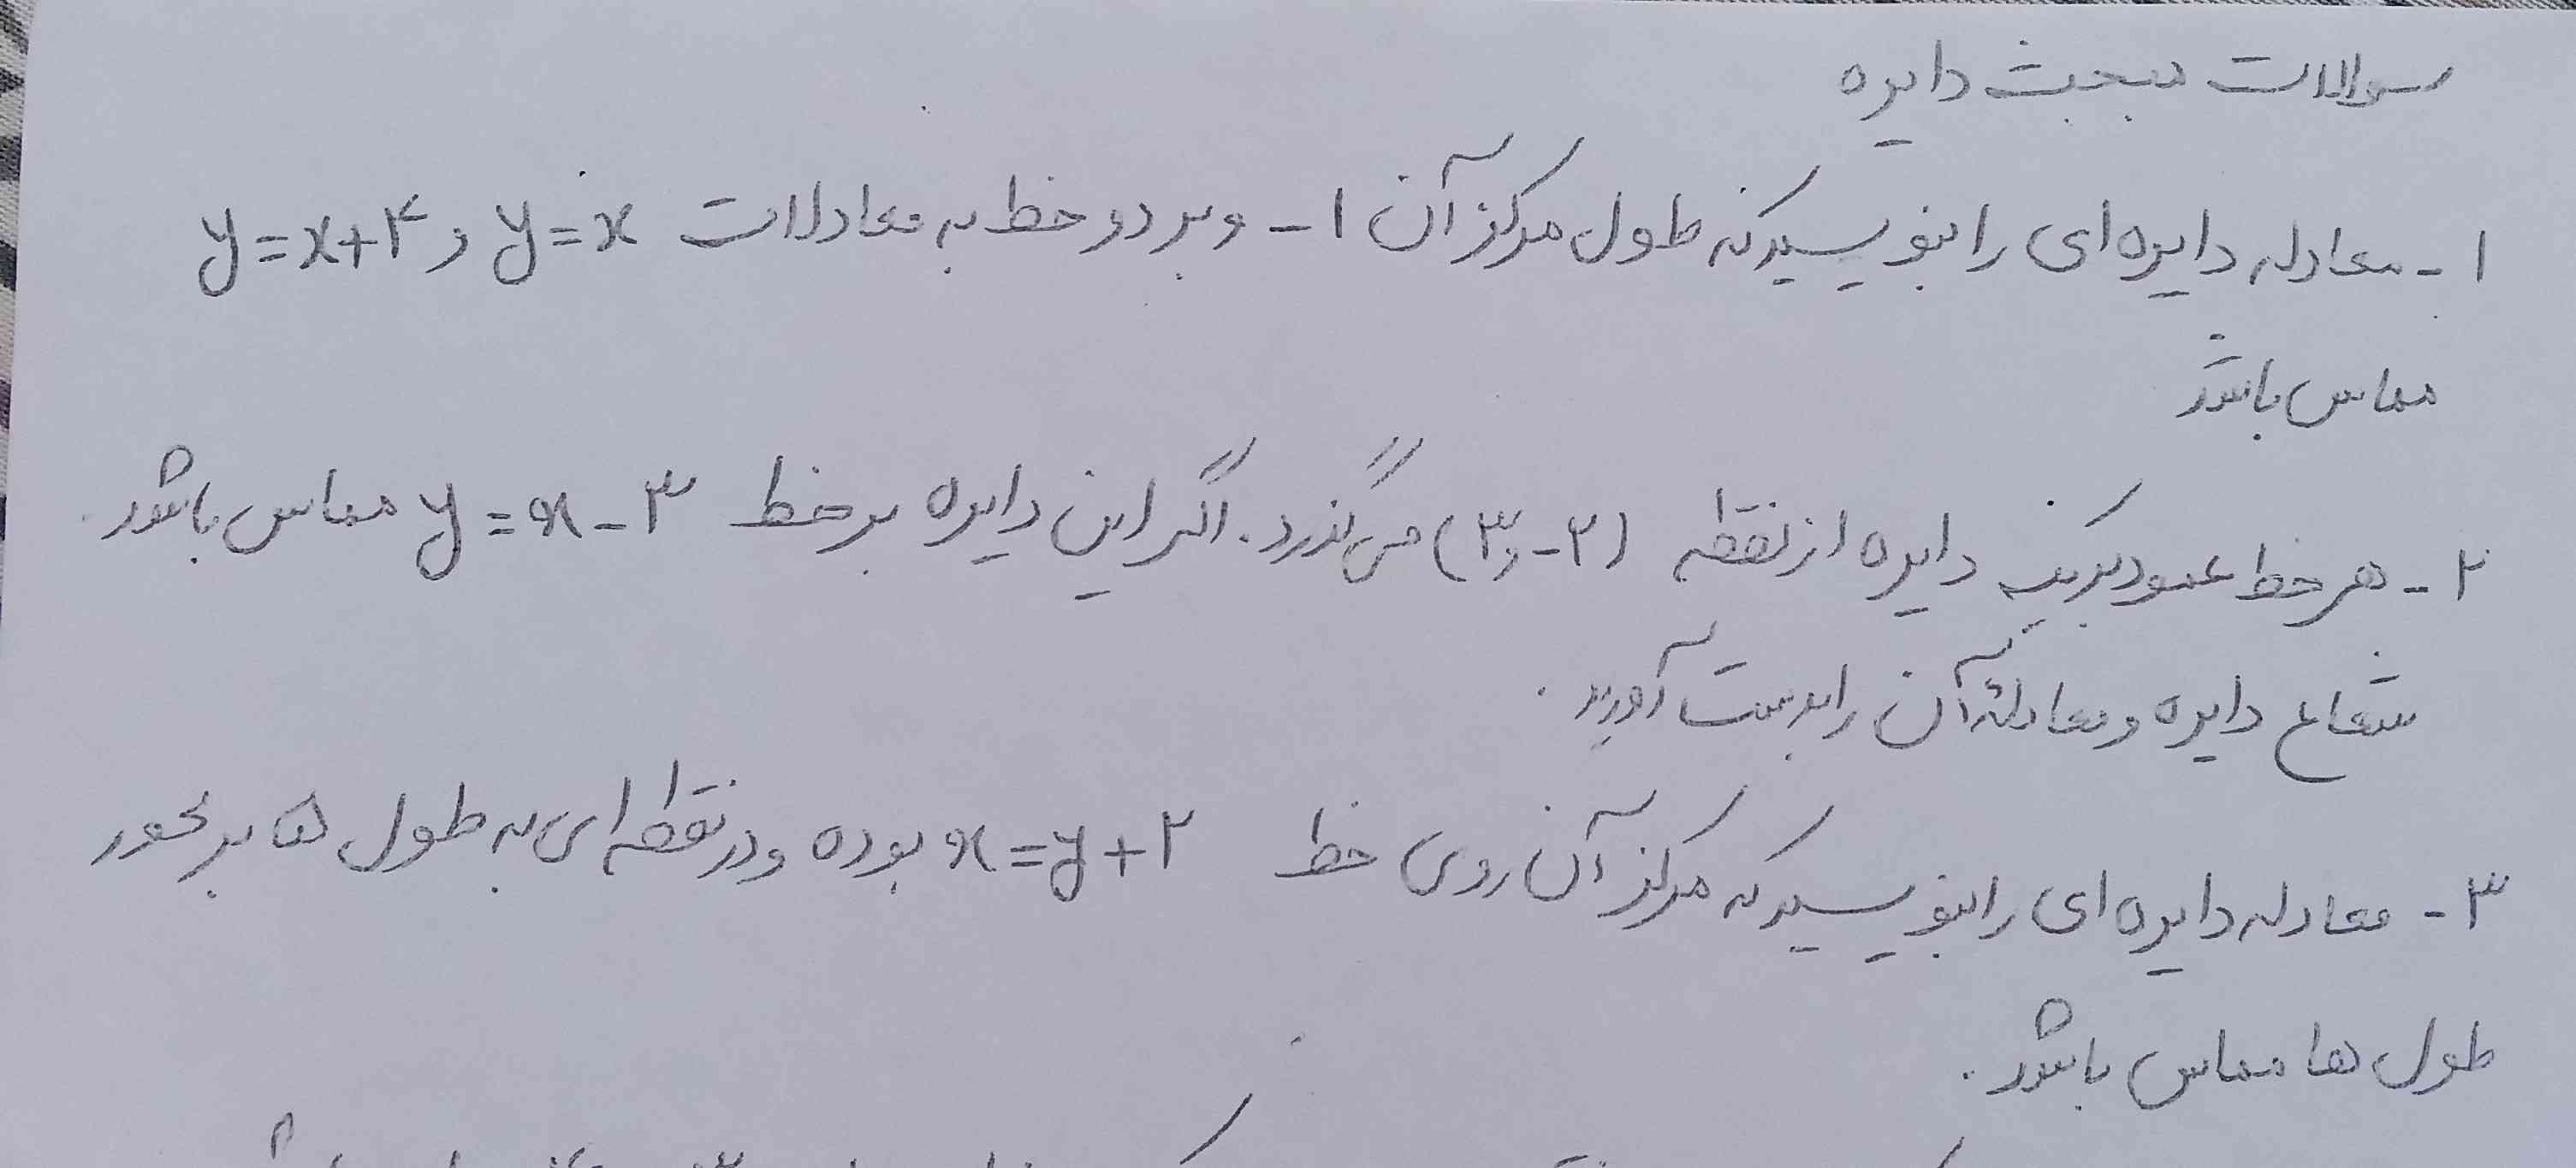 سوالات مبحث دایره
۱- معادله دایره ای را بنویسید که طول مرکز آن ۱- و بر دو خط به معادلات y=x و y=x+۴
مماس باشد
۲- هر خط عمود بر یک دایره از نقطه (۳,-۲) می گذرد. اگر این دایره بر خط y=x-۳ مماس باشد.
شعاع دایره و معادلهٔ آن را بدست آورید.
۳- معادله دایره ای را بنویسید که مرکز آن روی خط x=y+۲ بوده و در نقطه ای به طول ۵ بر محور
طول ها مماس باشد.